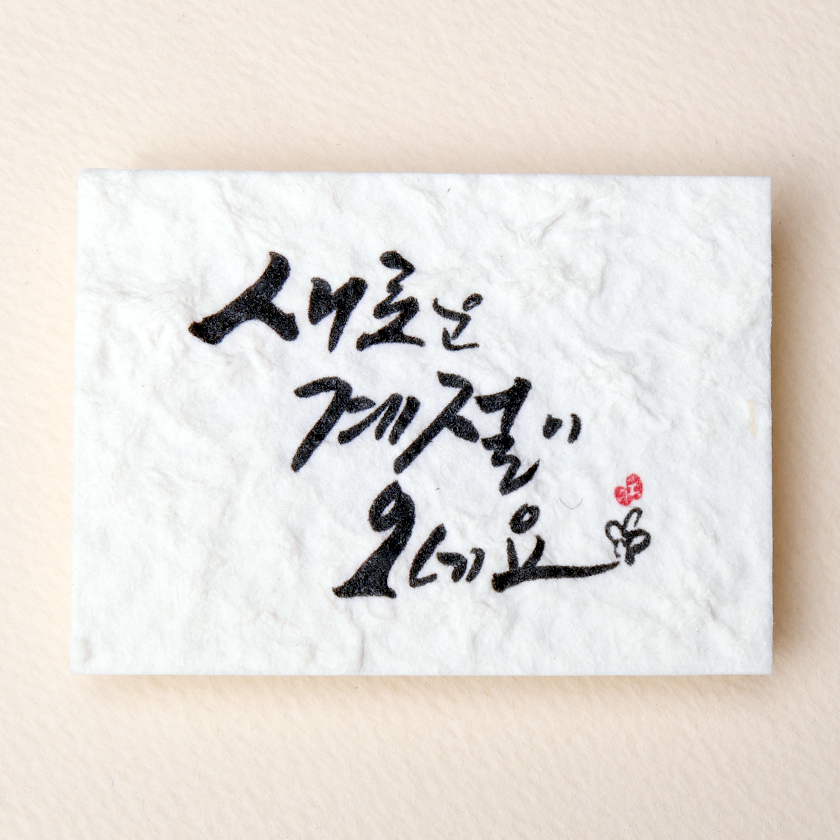 새로운
계절이
오네요